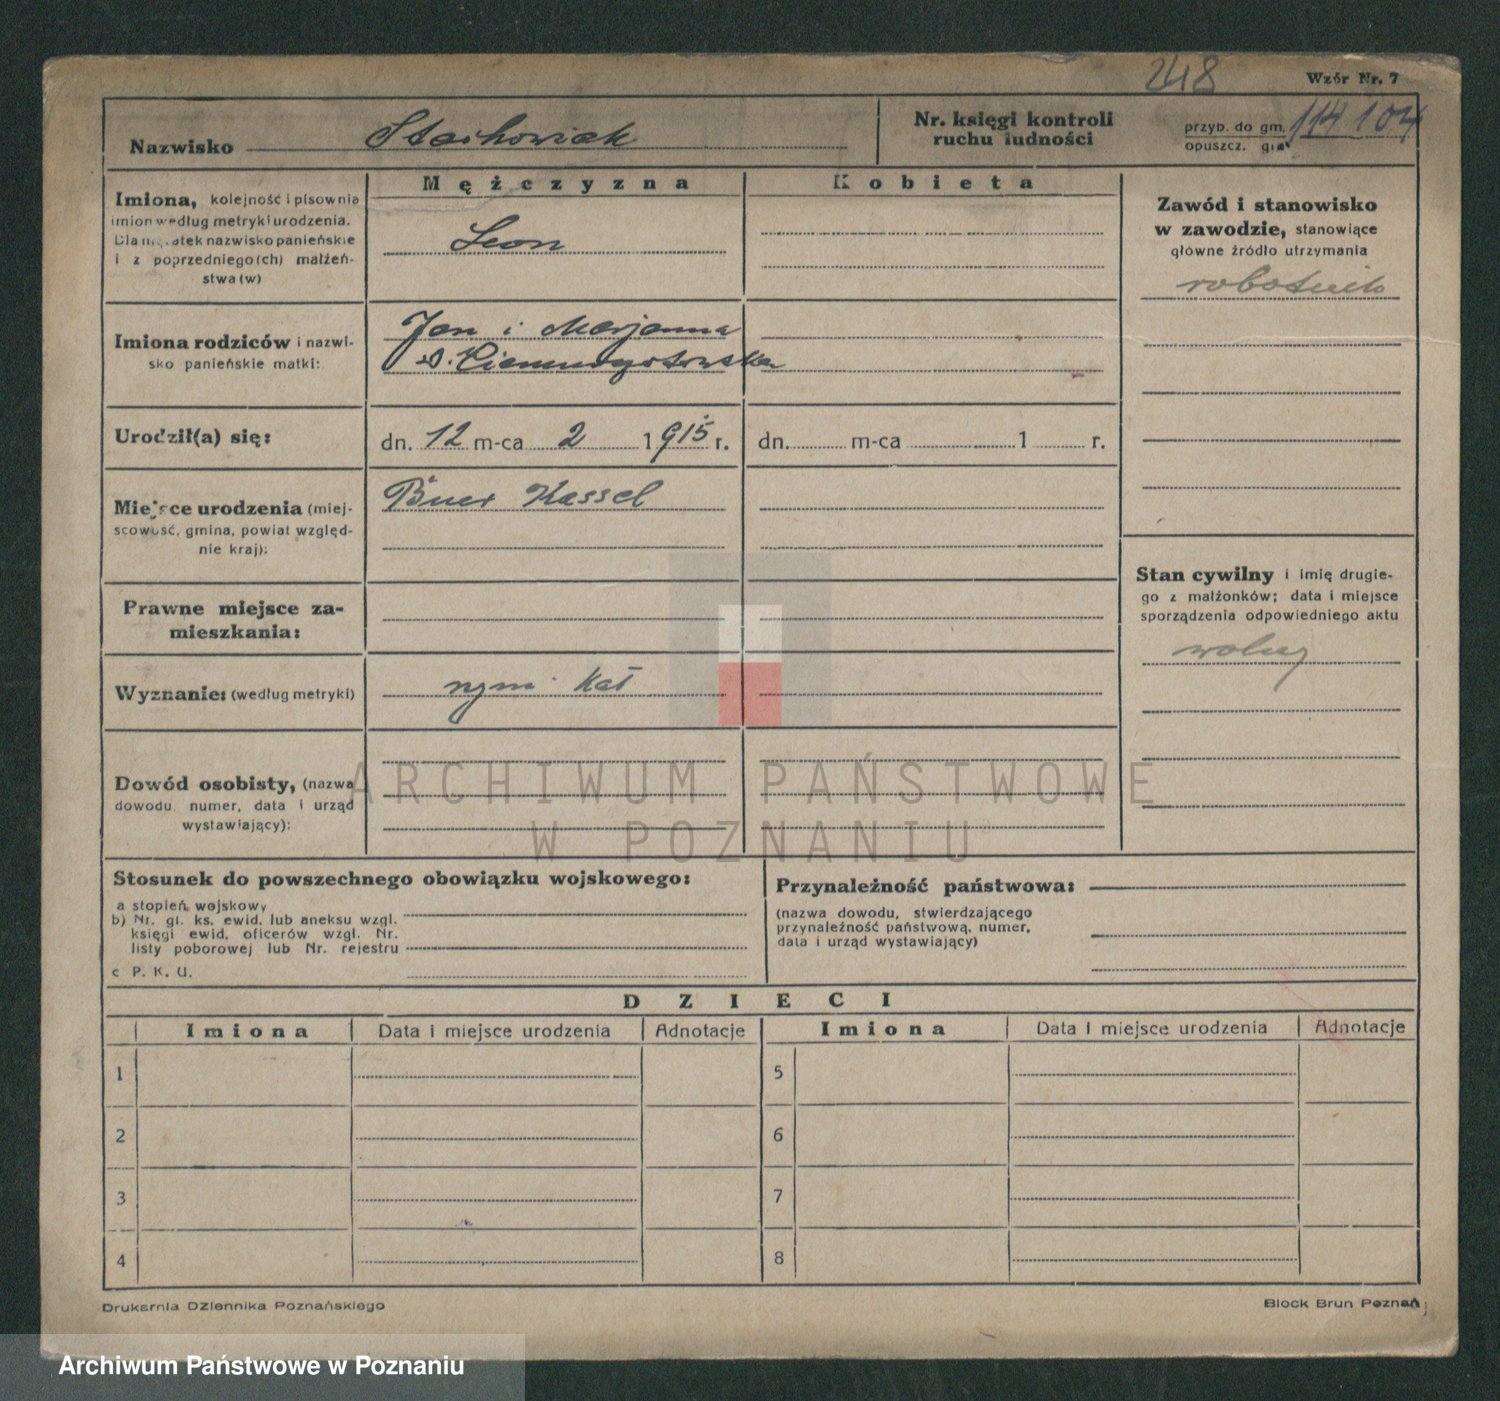 248
Wzór Nr. 7
Nazwisko Stachowiak
Nr. księgi kontroli
ruchu ludności
przyb. do gm. 114104
opuszcz. gm.
Mężczyzna
Kobieta
Imiona, kolejność i pisownia
imion według metryki urodzenia.
Dla mężatek nazwisko panieńskie
i z poprzedniego(ch) małżeń-
stwa(w)
Leon
Zawód i stanowisko
w zawodzie, stanowiące
główne źródło utrzymania
robotnik
Imiona rodziców i nazwi-
sko panieńskie matki:
Jan i Marjanna
Urodził(a) się:
dn. 12 m-ca 2 1915 r.
dn. m-ca 1 r.
Miejsce urodzenia (miej-
scowość, gmina, powiat względ-
nie kraj):
Buer Kassel
Prawne miejsce za-
mieszkania:
Stan cywilny i imię drugie-
go z małżonków; data i miejsce
sporządzenia odpowiedniego aktu
wolny
Wyznanie: (według metryki)
rzym. kat
Dowód osobisty, (nazwa
dowodu, numer, data i urząd
wystawiający):
ARCHIWUM PAŃSTWOWE
W POZNANIU
Stosunek do powszechnego obowiązku wojskowego:
a stopień wojskowy
b) Nr. gł. ks. ewid. lub aneksu wzgl.
księgi ewid. oficerów wzgl. Nr.
listy poborowej lub Nr. rejestru
c P. K. U.
Przynależność państwowa:
(nazwa dowodu, stwierdzającego
przynależność państwową, numer,
data i urząd wystawiający)
DZIECI
Imiona Data i miejsce urodzenia Adnotacje Imiona Data i miejsce urodzenia Adnotacje
1 5
2 6
3 7
4 8
Drukarnia Dziennika Poznańskiego
Block Brun Poznań
Archiwum Państwowe w Poznaniu